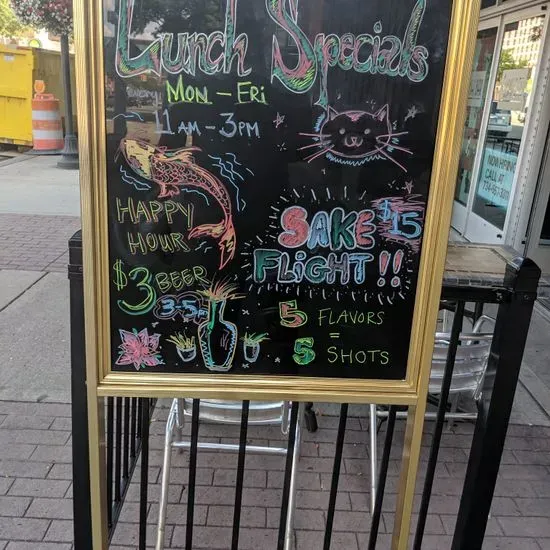 Lunch Specials
MON - FRI
11 AM - 3 PM
HAPPY
HOUR
$3 BEER
SAKE $15
FLIGHT!!
5 FLAVORS
=
5 SHOTS
NOW HIRING
CALL AT